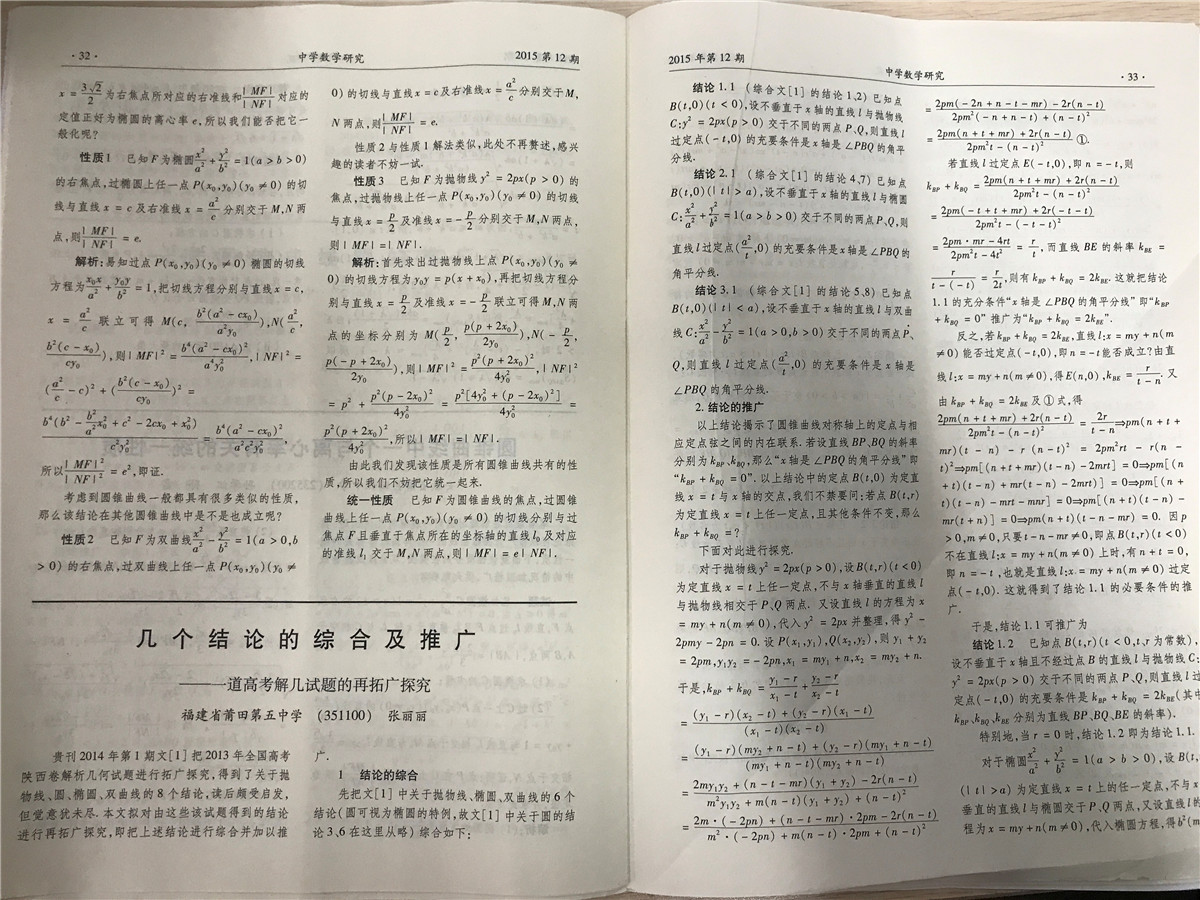 ·32·
中学数学研究
2015 第 12 期
x = 3√2/2 为右焦点所对应的右准线和 |MF|/|NF| 对应的
定值正好为椭圆的离心率 e,所以我们能否把它一
般化呢?
性质1 已知 F 为椭圆 x²/a² + y²/b² = 1(a > b > 0)
的右焦点,过椭圆上任一点 P(x₀,y₀)(y₀ ≠ 0) 的切
线与直线 x = c 及右准线 x = a²/c 分别交于 M,N 两
点,则 |MF|/|NF| = e.
解析:易知过点 P(x₀,y₀)(y₀ ≠ 0) 椭圆的切线
方程为 x₀x/a² + y₀y/b² = 1,把切线方程分别与直线 x = c,
x = a²/c 联立可得 M(c, b²(a² - cx₀)/a²y₀),N(a²/c,
b²(c - x₀)/cy₀),则 |MF|² = b⁴(a² - cx₀)²/a⁴y₀²,|NF|² =
(a²/c - c)² + (b²(c - x₀)/cy₀)² =
b⁴(b² - b²/a² x₀² + c² - 2cx₀ + x₀²)/c²y₀² = b⁴(a² - cx₀)²/a²c²y₀².
所以 |MF|²/|NF|² = e²,即证.
考虑到圆锥曲线一般都具有很多类似的性质,
那么该结论在其他圆锥曲线中是不是也成立呢?
性质2 已知 F 为双曲线 x²/a² - y²/b² = 1(a > 0,b
> 0) 的右焦点,过双曲线上任一点 P(x₀,y₀)(y₀ ≠
0) 的切线与直线 x = c 及右准线 x = a²/c 分别交于 M,
N 两点,则 |MF|/|NF| = e.
性质 2 与性质 1 解法类似,此处不再赘述,感兴
趣的读者不妨一试.
性质3 已知 F 为抛物线 y² = 2px(p > 0) 的
焦点,过抛物线上任一点 P(x₀,y₀)(y₀ ≠ 0) 的切线
与直线 x = p/2 及准线 x = -p/2 分别交于 M,N 两点,
则 |MF| = |NF|.
解析:首先求出过抛物线上点 P(x₀,y₀)(y₀ ≠
0) 的切线方程为 y₀y = p(x + x₀),再把切线方程分
别与直线 x = p/2 及准线 x = -p/2 联立可得 M,N 两
点的坐标分别为 M(p/2, p(p + 2x₀)/2y₀),N(-p/2,
p(-p + 2x₀)/2y₀),则 |MF|² = p²(p + 2x₀)²/4y₀²,|NF|²
= p² + p²(p - 2x₀)²/4y₀² = p²[4y₀² + (p - 2x₀)²]/4y₀² =
p²(p + 2x₀)²/4y₀²,所以 |MF| = |NF|.
由此我们发现该性质是所有圆锥曲线共有的性
质,所以我们不妨把它统一起来.
统一性质 已知 F 为圆锥曲线的焦点,过圆锥
曲线上任一点 P(x₀,y₀)(y₀ ≠ 0) 的切线分别与过
焦点 F 且垂直于焦点所在的坐标轴的直线 l₀ 及对应
的准线 l₁ 交于 M,N 两点,则 |MF| = e|NF|.
几个结论的综合及推广
——一道高考解几试题的再拓广探究
福建省莆田第五中学 (351100) 张丽丽
贵刊 2014 年第 1 期文[1] 把 2013 年全国高考
陕西卷解析几何试题进行拓广探究,得到了关于抛
物线、圆、椭圆、双曲线的 8 个结论,读后颇受启发,
但觉意犹未尽. 本文拟对由这些该试题得到的结论
进行再拓广探究,即把上述结论进行综合并加以推
广.
1 结论的综合
先把文[1] 中关于抛物线、椭圆、双曲线的 6 个
结论(圆可视为椭圆的特例,故文[1] 中关于圆的结
论 3、6 在这里从略) 综合如下:
2015 年第 12 期
中学数学研究
·33·
结论 1.1 (综合文[1] 的结论 1、2) 已知点
B(t,0)(t < 0),设不垂直于 x 轴的直线 l 与抛物线
C:y² = 2px(p > 0) 交于不同的两点 P、Q,则直线 l
过定点(-t,0) 的充要条件是 x 轴是 ∠PBQ 的角平
分线.
结论 2.1 (综合文[1] 的结论 4、7) 已知点
B(t,0)(|t| > a),设不垂直于 x 轴的直线 l 与椭圆
C:x²/a² + y²/b² = 1(a > b > 0) 交于不同的两点 P、Q,则
直线 l 过定点(a²/t,0) 的充要条件是 x 轴是 ∠PBQ 的
角平分线.
结论 3.1 (综合文[1] 的结论 5、8) 已知点
B(t,0)(|t| < a),设不垂直于 x 轴的直线 l 与双曲
线 C:x²/a² - y²/b² = 1(a > 0,b > 0) 交于不同的两点 P、
Q,则直线 l 过定点(a²/t,0) 的充要条件是 x 轴是
∠PBQ 的角平分线.
2. 结论的推广
以上结论揭示了圆锥曲线对称轴上的定点与相
应定点弦之间的内在联系. 若设直线 BP、BQ 的斜率
分别为 k_BP、k_BQ,那么“x 轴是 ∠PBQ 的角平分线”即
“k_BP + k_BQ = 0”. 以上结论中的定点 B(t,0) 为定直
线 x = t 与 x 轴的交点,我们不禁要问:若点 B(t,r)
为定直线 x = t 上任一定点,且其他条件不变,那么
k_BP + k_BQ = ?
下面对此进行探究.
对于抛物线 y² = 2px(p > 0),设 B(t,r)(t < 0)
为定直线 x = t 上任一定点,不与 x 轴垂直的直线 l
与抛物线相交于 P、Q 两点. 又设直线 l 的方程为 x
= my + n(m ≠ 0),代入 y² = 2px 并整理,得 y² -
2pmy - 2pn = 0. 设 P(x₁,y₁),Q(x₂,y₂),则 y₁ + y₂
= 2pm,y₁y₂ = -2pn,x₁ = my₁ + n,x₂ = my₂ + n.
于是,k_BP + k_BQ = (y₁ - r)/(x₁ - t) + (y₂ - r)/(x₂ - t)
= [(y₁ - r)(x₂ - t) + (y₂ - r)(x₁ - t)]/[(x₁ - t)(x₂ - t)]
= [(y₁ - r)(my₂ + n - t) + (y₂ - r)(my₁ + n - t)]/[(my₁ + n - t)(my₂ + n - t)]
= [2my₁y₂ + (n - t - mr)(y₁ + y₂) - 2r(n - t)]/[m²y₁y₂ + m(n - t)(y₁ + y₂) + (n - t)²]
= [2m·(-2pn) + (n - t - mr)·2pm - 2r(n - t)]/[m²·(-2pn) + m(n - t)·2pm + (n - t)²]
= [2pm(-2n + n - t - mr) - 2r(n - t)]/[2pm²(-n + n - t) + (n - t)²]
= [2pm(n + t + mr) + 2r(n - t)]/[2pm²t - (n - t)²] ①.
若直线 l 过定点 E(-t,0),即 n = -t,则
k_BP + k_BQ = [2pm(n + t + mr) + 2r(n - t)]/[2pm²t - (n - t)²]
= [2pm(-t + t + mr) + 2r(-t - t)]/[2pm²t - (-t - t)²]
= (2pm·mr - 4rt)/(2pm²t - 4t²) = r/t,而直线 BE 的斜率 k_BE =
r/(t - (-t)) = r/2t,则有 k_BP + k_BQ = 2k_BE. 这就把结论
1.1 的充分条件“x 轴是 ∠PBQ 的角平分线”即“k_BP
+ k_BQ = 0”推广为“k_BP + k_BQ = 2k_BE”.
反之,若 k_BP + k_BQ = 2k_BE,直线 l:x = my + n(m
≠ 0) 能否过定点(-t,0),即 n = -t 能否成立?由直
线 l:x = my + n(m ≠ 0),得 E(n,0),k_BE = r/(t - n). 又
由 k_BP + k_BQ = 2k_BE 及①式,得
[2pm(n + t + mr) + 2r(n - t)]/[2pm²t - (n - t)²] = 2r/(t - n) ⇒pm(n + t +
mr)(t - n) - r(n - t)² = 2pm²rt - r(n -
t)²⇒pm[(n + t + mr)(t - n) - 2mrt] = 0⇒pm[(n
+ t)(t - n) + mr(t - n) - 2mrt)] = 0⇒pm[(n +
t)(t - n) - mrt - mnr] = 0⇒pm[(n + t)(t - n) -
mr(t + n)] = 0⇒pm(n + t)(t - n - mr) = 0. 因 p
> 0,m ≠ 0,只要 t - n - mr ≠ 0,即点 B(t,r)(t < 0)
不在直线 l:x = my + n(m ≠ 0) 上时,有 n + t = 0,
即 n = -t,也就是直线 l:x = my + n(m ≠ 0) 过定
点(-t,0). 这就得到了结论 1.1 的必要条件的推
广.
于是,结论 1.1 可推广为
结论 1.2 已知点 B(t,r)(t < 0,t、r 为常数),
设不垂直于 x 轴且不经过点 B 的直线 l 与抛物线 C:
y² = 2px(p > 0) 交于不同的两点 P、Q,则直线 l 过
定点(-t,0) 的充要条件是 k_BP + k_BQ = 2k_BE(其中
k_BP、k_BQ、k_BE 分别为直线 BP、BQ、BE 的斜率).
特别地,当 r = 0 时,结论 1.2 即为结论 1.1.
对于椭圆 x²/a² + y²/b² = 1(a > b > 0),设 B(t,
(|t| > a) 为定直线 x = t 上的任一定点,不与 x
垂直的直线 l 与椭圆交于 P、Q 两点,又设直线 l 的
程为 x = my + n(m ≠ 0),代入椭圆方程,得 b²(m